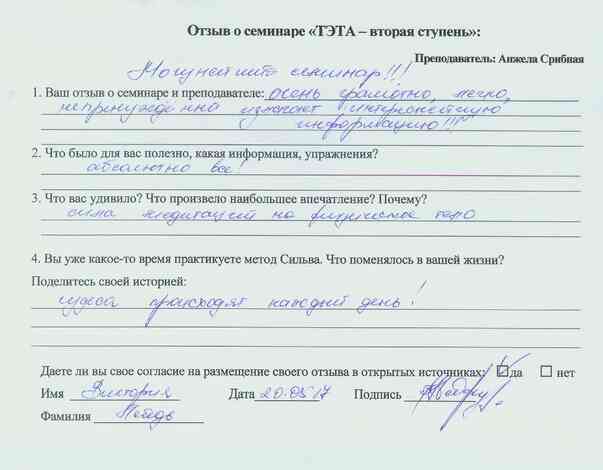 Отзыв о семинаре «ТЭТА – вторая ступень»:
Преподаватель: Анжела Срибная
Могущнейший семинар!!!
1. Ваш отзыв о семинаре и преподавателе: очень грамотно, легко,
непринуждённо излагает интереснейшую
информацию!!!
2. Что было для вас полезно, какая информация, упражнения?
абсолютно все!
3. Что вас удивило? Что произвело наибольшее впечатление? Почему?
сила медитаций на физическое тело
4. Вы уже какое-то время практикуете метод Сильва. Что поменялось в вашей жизни?
Поделитесь своей историей:
чудеса происходят каждый день!
Даете ли вы свое согласие на размещение своего отзыва в открытых источниках: да нет
Имя Виктория Дата 20.05.17 Подпись
Фамилия